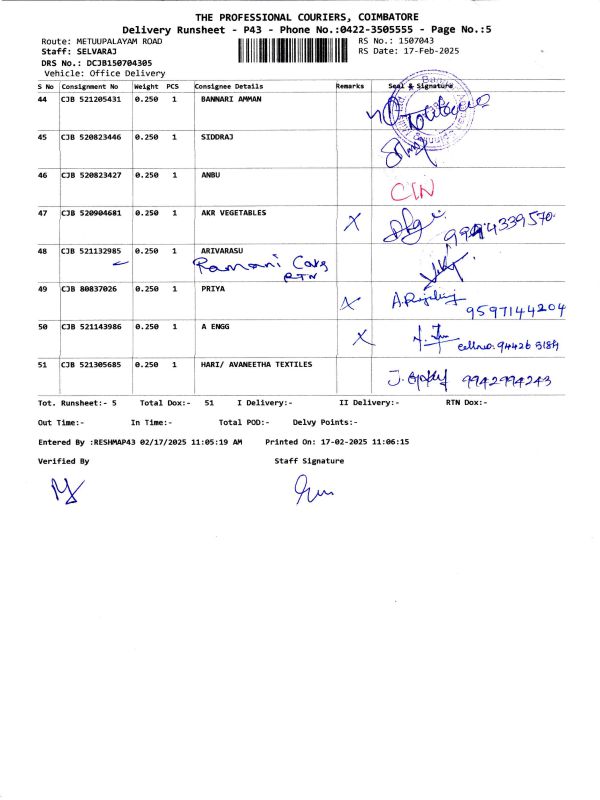 THE PROFESSIONAL COURIERS, COIMBATORE
Delivery Runsheet - P43 - Phone No.:0422-3505555 - Page No.:5
Route: METUUPALAYAM ROAD RS No.: 1507043
Staff: SELVARAJ RS Date: 17-Feb-2025
DRS No.: DCJB150704305
Vehicle: Office Delivery
S No Consignment No Weight PCS Consignee Details Remarks Seal & Signature
44 CJB 521205431 0.250 1 BANNARI AMMAN
45 CJB 520823446 0.250 1 SIDDRAJ
46 CJB 520823427 0.250 1 ANBU
47 CJB 520904681 0.250 1 AKR VEGETABLES X 9994339570
48 CJB 521132985 0.250 1 ARIVARASU
Ramani Cars
RTN
49 CJB 80837026 0.250 1 PRIYA X 9597144204
50 CJB 521143986 0.250 1 A ENGG X cell no: 94426 3184
51 CJB 521305685 0.250 1 HARI/ AVANEETHA TEXTILES 9942994243
Tot. Runsheet:- 5 Total Dox:- 51 I Delivery:- II Delivery:- RTN Dox:-
Out Time:- In Time:- Total POD:- Delvy Points:-
Entered By :RESHMAP43 02/17/2025 11:05:19 AM Printed On: 17-02-2025 11:06:15
Verified By Staff Signature